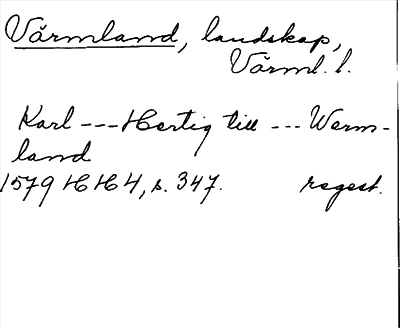 Värmland, landskap,
Värml. l.
Karl --- Hertig till --- Werm-
land
1579 HH4, s. 347. regest.